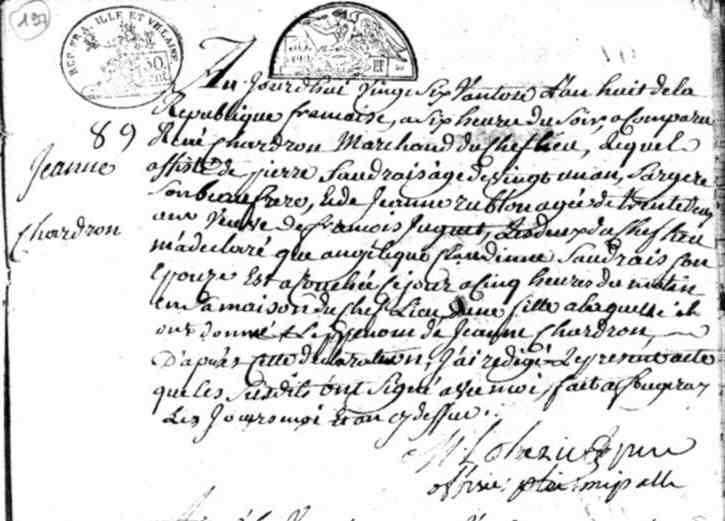 197
REP. FRA. ILLE ET VILAINE
89
Jeanne
Chardron
Aujourdhui vingt six Vantose Lan huit de la
Republique francaise, a six heure du soir, a Comparu
René Chardron Marchand du Cheflieu, lequel
assisté de pierre Saudrais agé de vingt un an, Sargere
Son beau frere, et de Jeanne rublon agée de trente deux
ans Veuve de francois Juguet, du Cheflieu
m'a declaré que angelique Claudinne Saudrais Son
Epouze Est acouchée Ce jour a Cinq heures du matin
en Sa maison du Chef Lieu dune fille a laquelle il
ont donné Le prenom de Jeanne Chardron,
D'apres Cette declaration, J'ai redigé Le present acte
que les Susdits ont Signé avec moi, fait a fougeray
Les Jours moi et an cy dessus.